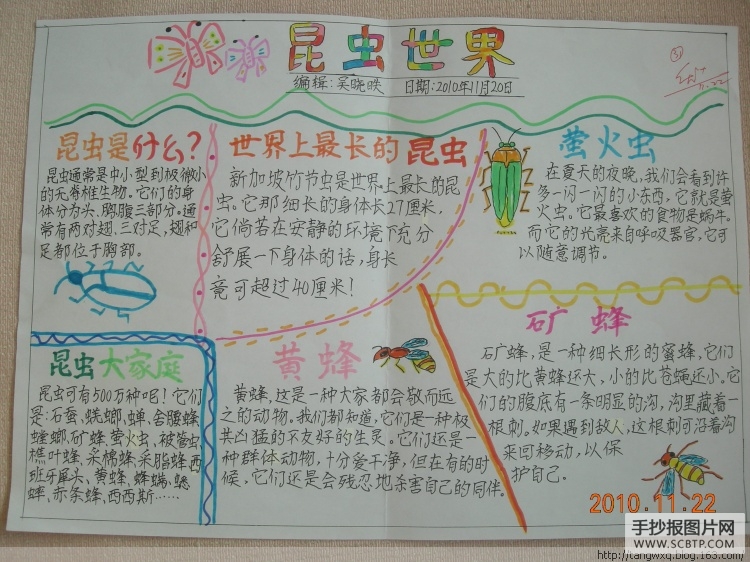 昆虫世界
编辑:吴晓昳 日期:2010年11月20日
昆虫是什么?
昆虫通常是中小型到极微小
的无脊椎生物。它们的身
体分为头、胸腹三部分。通
常有两对翅,三对足,翅和
足都位于胸部。
世界上最长的昆虫
新加坡竹节虫是世界上最长的昆
虫。它那细长的身体长27厘米,
它倘若在安静的环境下充分
舒展一下身体的话,身长
竟可超过40厘米!
萤火虫
在夏天的夜晚,我们会看到许
多一闪一闪的小东西,它就是萤
火虫。它最喜欢的食物是蜗牛。
而它的光亮来自呼吸器官,它可
以随意调节。
昆虫大家庭
昆虫可有500万种呢!它们
是:石蚕、蜣螂、蝉、舍腰蜂、
螳螂、矿蜂、萤火虫、被管虫、
樵叶蜂、采棉蜂、采脂蜂、西
班牙犀头、黄蜂、蜂螨、蟋
蟀、赤条蜂、西西斯……
黄蜂
黄蜂,这是一种大家都会敬而远
之的动物。我们都知道,它们是一种极
其凶猛的不友好的生灵。它们还是一
种群体动物,十分爱干净,但在有的时
候,它们还是会残忍地杀害自己的同伴。
矿蜂
石广蜂,是一种细长形的蜜蜂,它们
是大的比黄蜂还大,小的比苍蝇还小。它
们的腹底有一条明显的沟,沟里藏着一
根刺。如果遇到敌人,这根刺可沿着沟
来回移动,以保
护自己。
2010.11.22
手抄报图片网
WWW.SCBTP.COM
http://tangwxq.blog.163.com